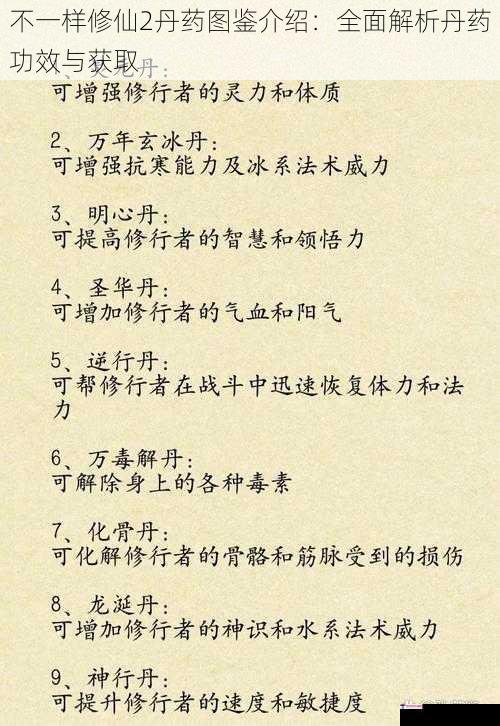 不一样修仙2丹药图鉴介绍：全面解析丹药
功效与获取
可增强修行者的灵力和体质
2、万年玄冰丹：
可增强抗寒能力及冰系法术威力
3、明心丹：
可提高修行者的智慧和领悟力
4、圣华丹：
可增加修行者的气血和阳气
5、逆行丹：
可帮修行者在战斗中迅速恢复体力和法
力
6、万毒解丹：
可解除身上的各种毒素
7、化骨丹：
可化解修行者的骨骼和筋脉受到的损伤
8、龙涎丹：
可增加修行者的神识和水系法术威力
9、神行丹：
可提升修行者的速度和敏捷度